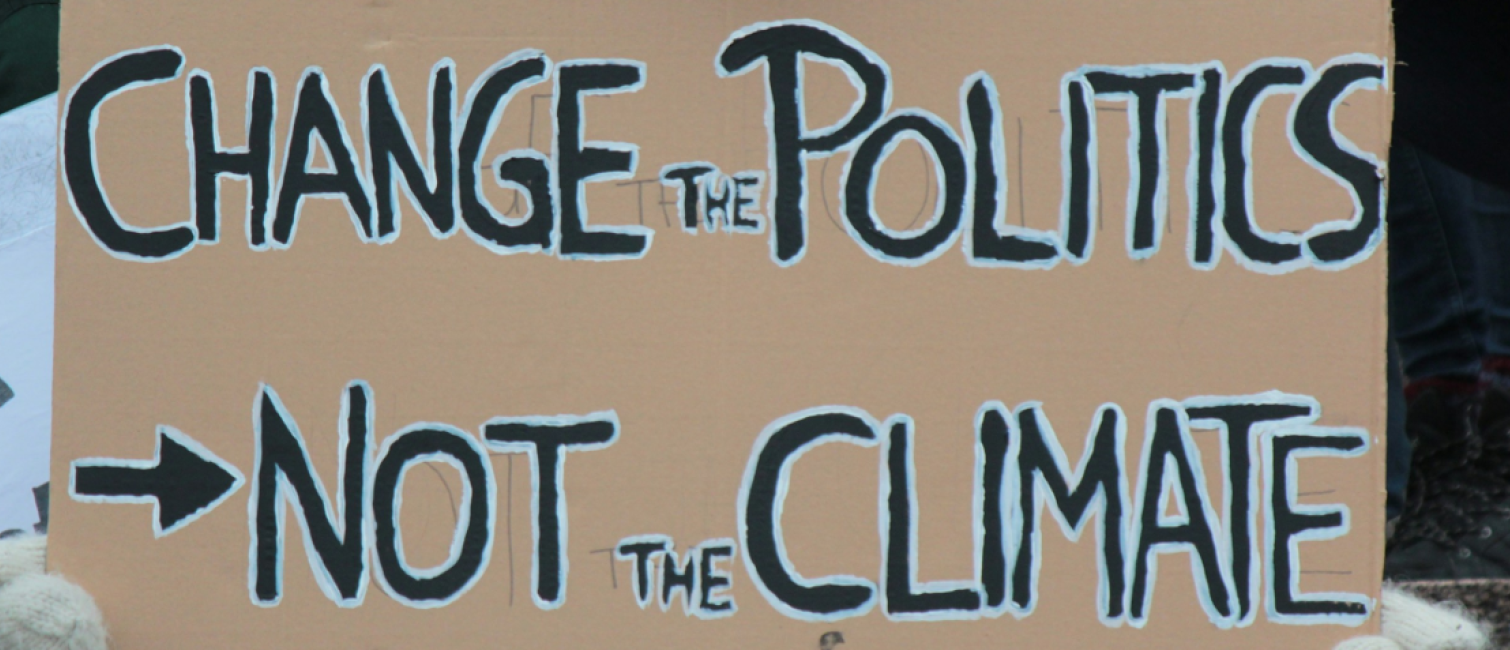 CHANGE THE POLITICS
→ NOT THE CLIMATE